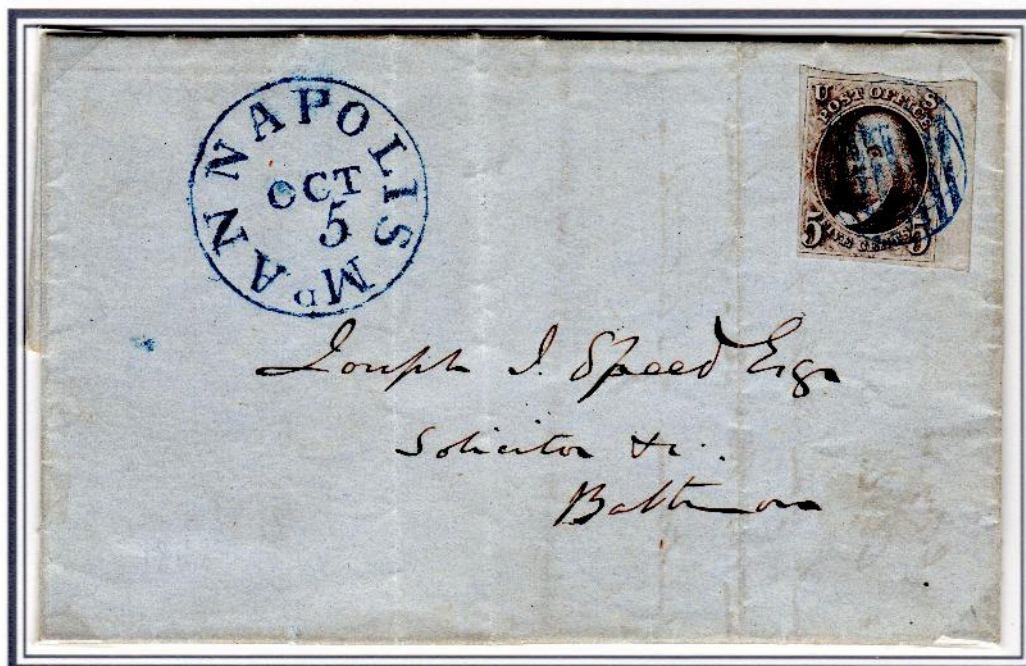 ANNAPOLIS Md
OCT
5
U S
POST OFFICE
FIVE CENTS
5 5
Joseph J. Speed Esqr
Solicitor &c.
Baltimore